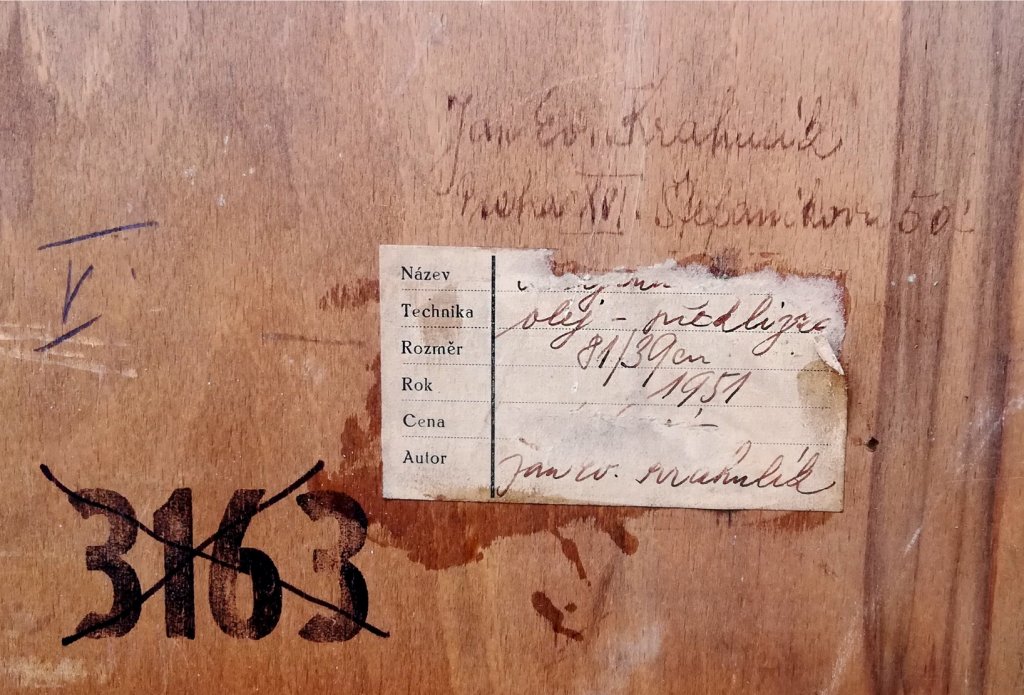 Jan Ev. Krahulík
Praha XVI. Štefánikova 50.
V
Název
Technika olej - překližka
Rozměr 81/39 cm
Rok 1951
Cena
Autor Jan Ev. Krahulík
3163